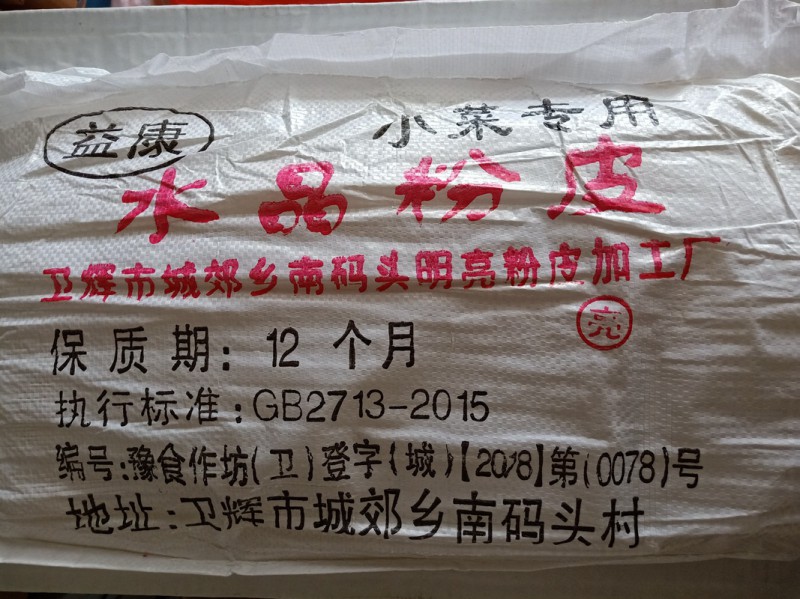 益康 小菜专用
水晶粉皮
卫辉市城郊乡南码头明亮粉皮加工厂
亮
保质期：12个月
执行标准：GB2713-2015
编号：豫食作坊(卫)登字(城)【2018】第(0078)号
地址：卫辉市城郊乡南码头村